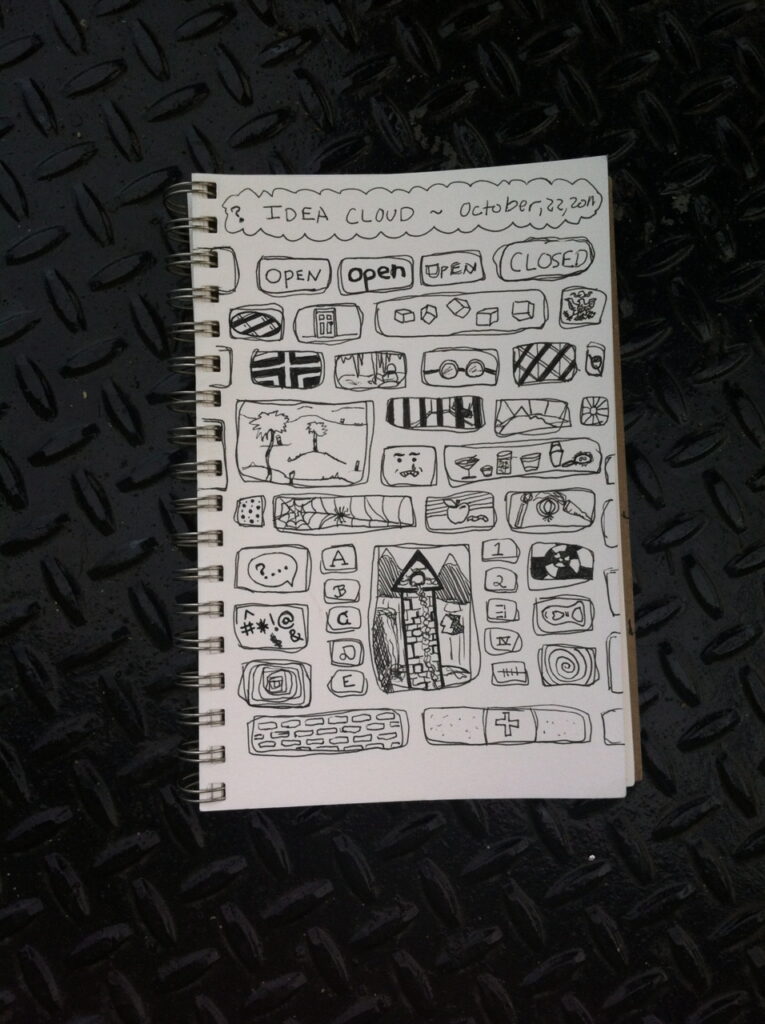 ? IDEA CLOUD ~ October, 22, 2011
OPEN open OPEN CLOSED
?...
A 1
B 2
^
#*!@
&
C III
D IV
E